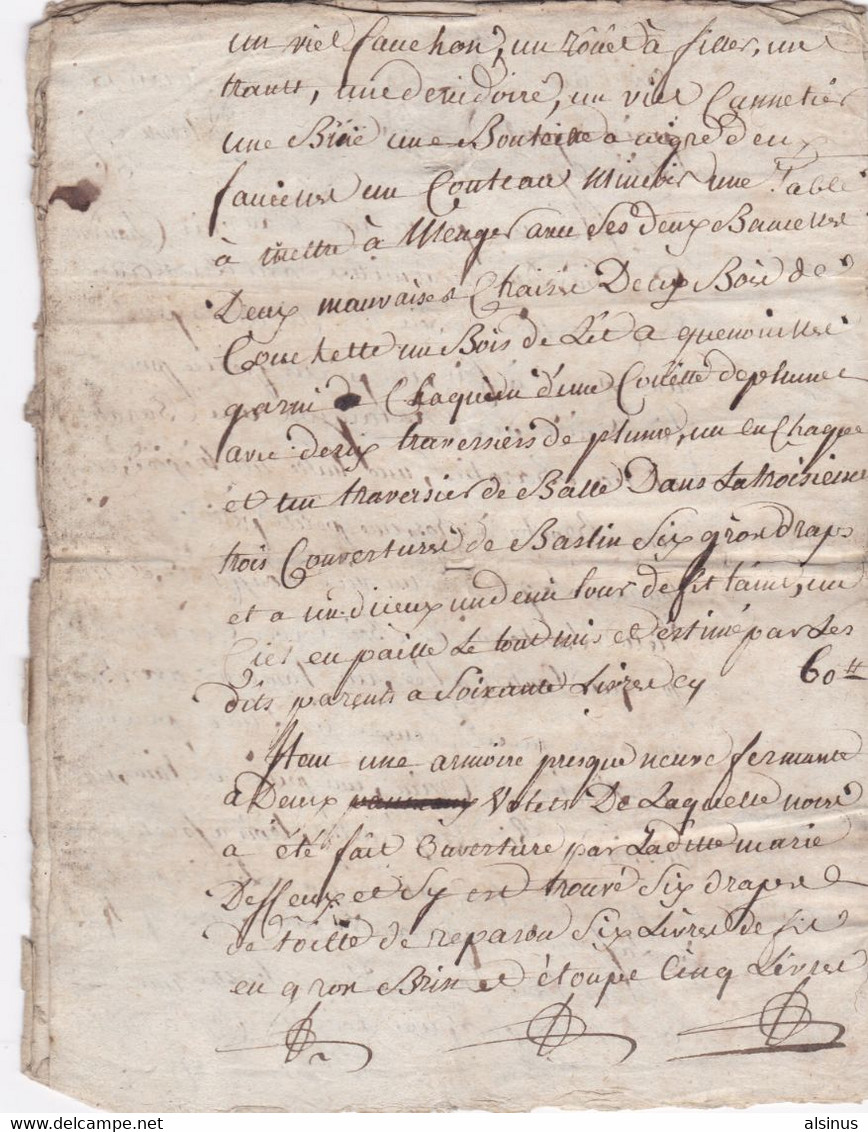 un viel fauchon, un rôuet à filer, un
trauil, une devidoire, un viel Cannetier
une Buie une Bouteille a vigre deux
faucille un Couteau une Table
à mettre à Menger avec ses deux Bancelle
Deux mauvaises Chaisse Deux Bois de
Couchette un Bois de Lit a quenouille
garni Chaquun d'une Couëtte de plume
avec deux traversiers de plume, un en Chaque
et un traversier de Balle Dans La troisieme
trois Couverture de Baslin Six gron draps
et a un un demi tour de lit laine, un
Ciel en paille Le tout mis et Estimé par Les
dits parents a Soixante Livres cy 60 ₶
Item une armoire presque neuve fermante
à Deux Volets De Laquelle noire
a été fait ouverture par Laditte marie
Desseux et Sy est trouvé Six draps
de toille de reparon Six Livres de fil
en gron Brin et étoupe Cinq Livres
delcampe.net
alsinus